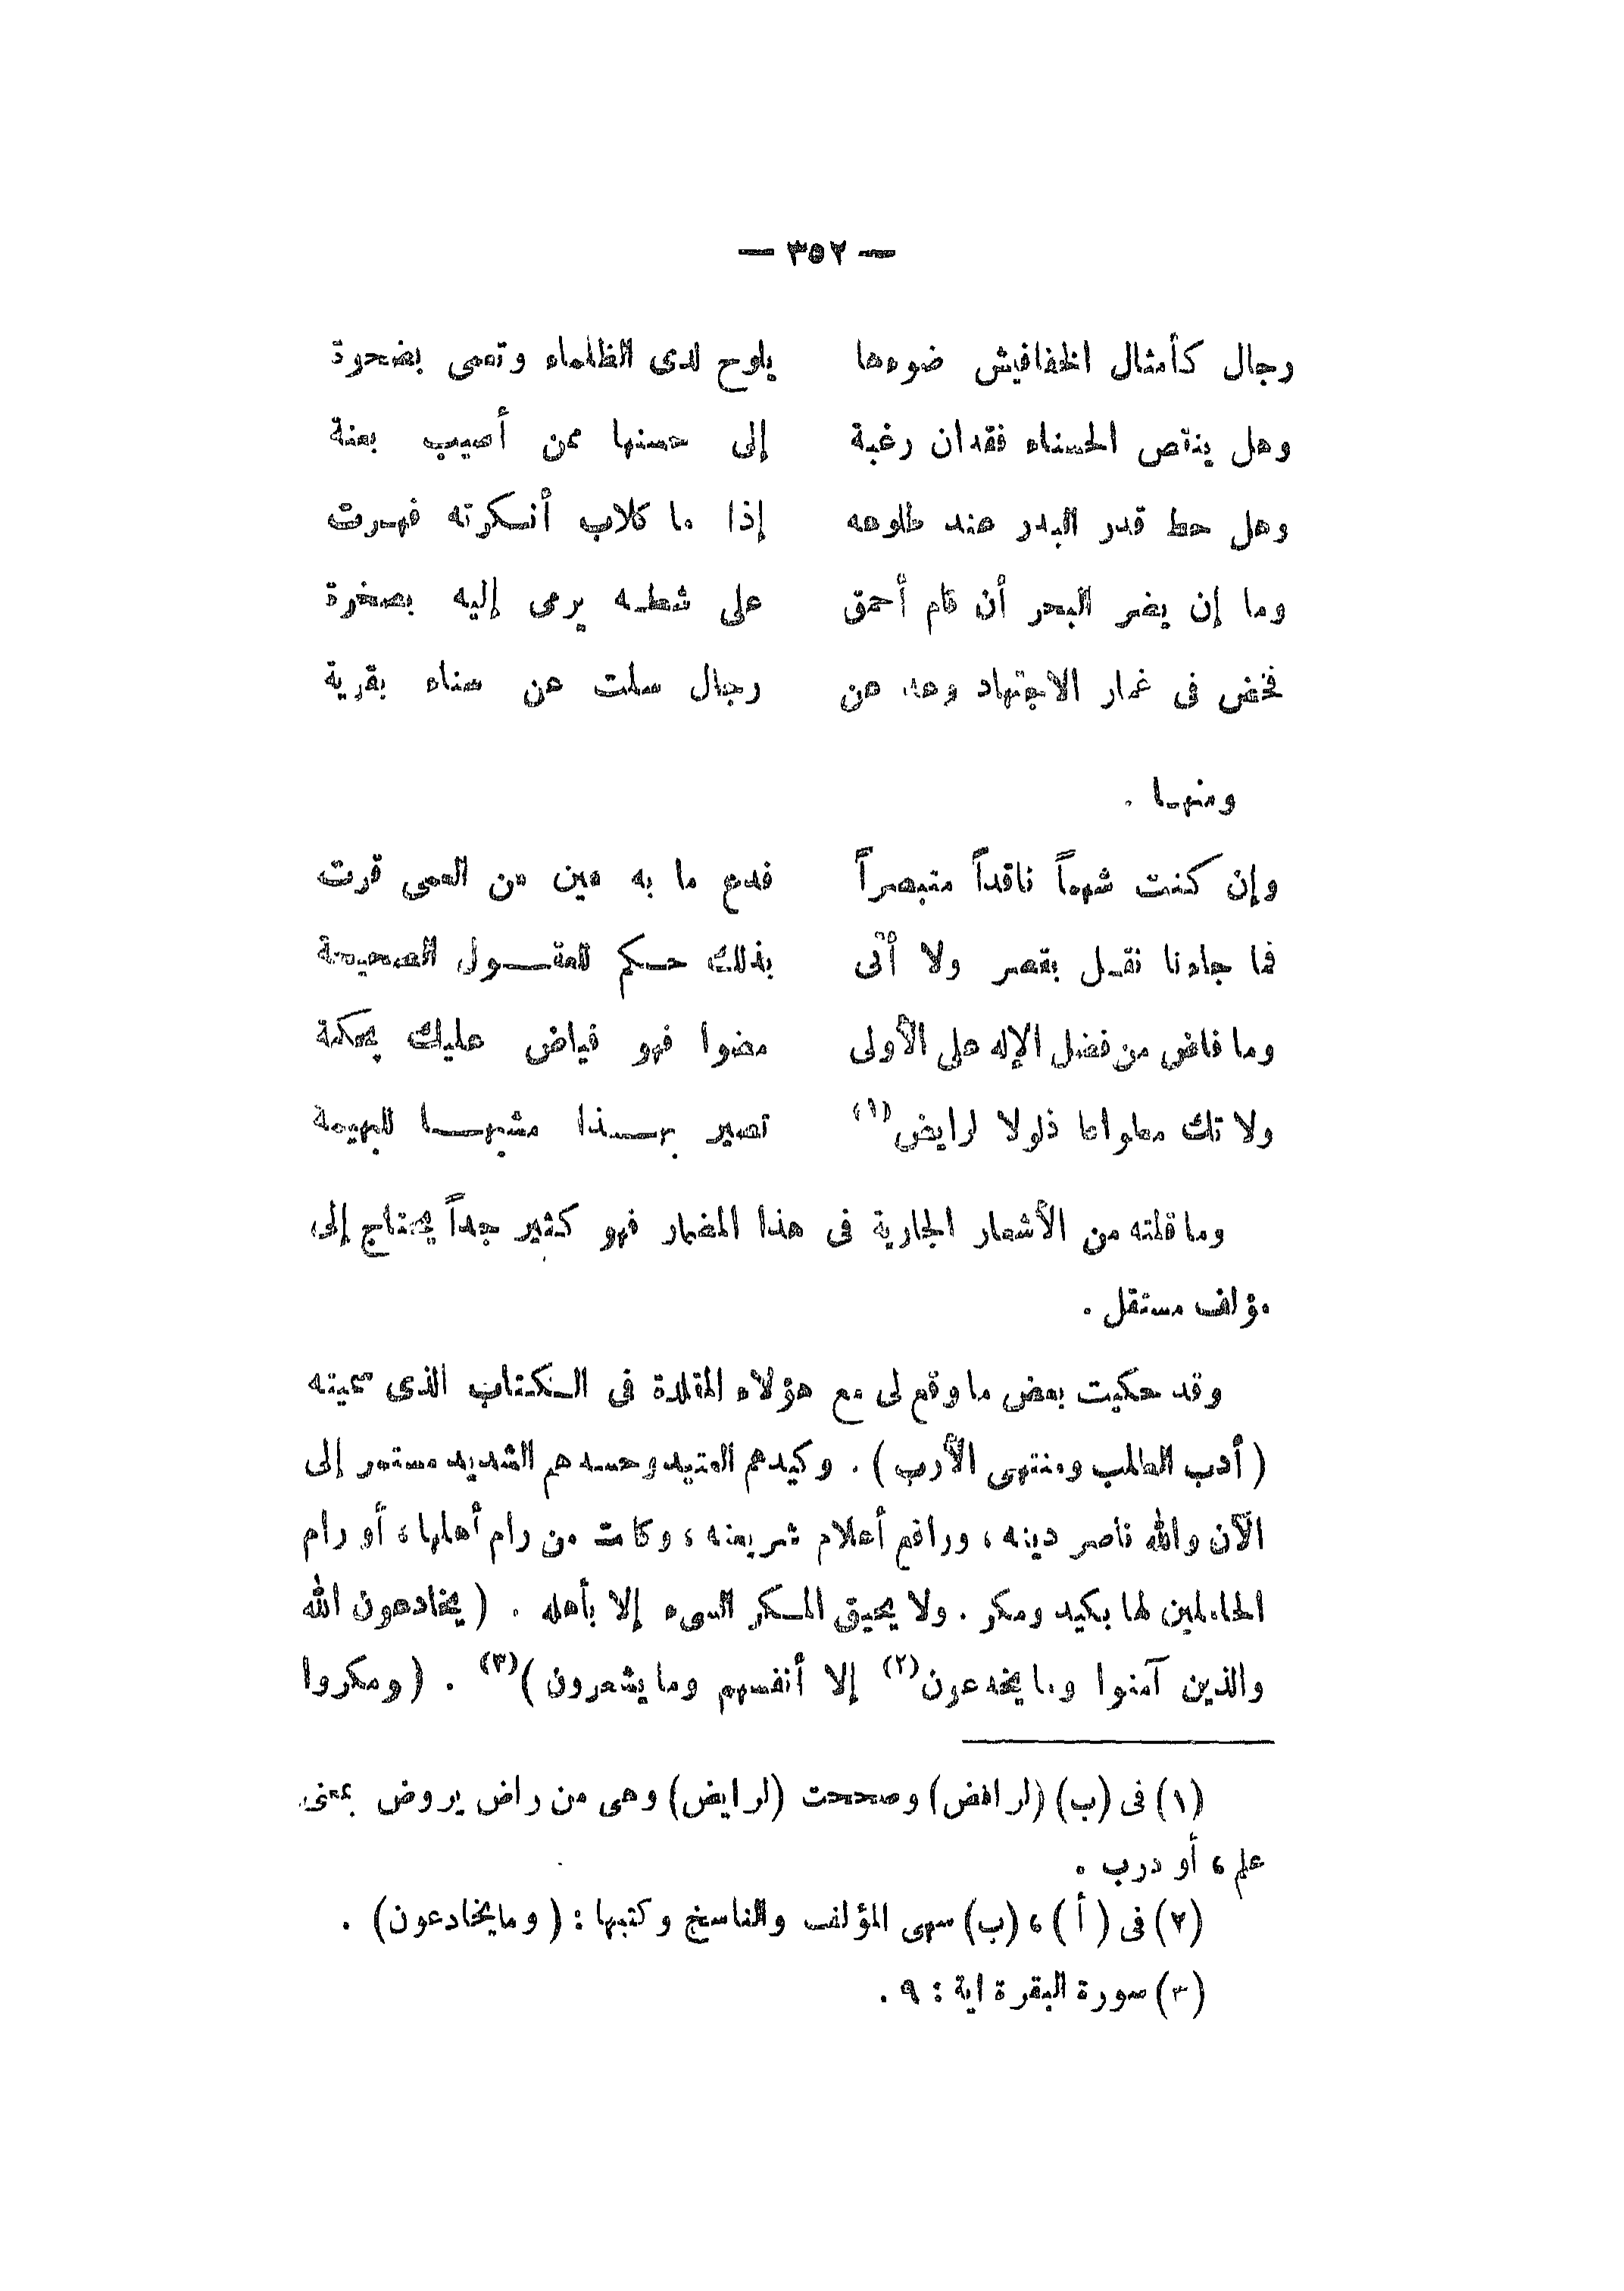 — ٣٥٢ —
رجال كأمثال الخفافيش ضوءها يلوح لدى الظلماء وتعمى بضحوة
وهل ينقص الحسناء فقدان رغبة إلى حسنها ممن أصيب بعنة
وهل حط قدر البدر عند طلوعه إذا ما كلاب أنكرته فهرت
وما إن يضر البحر أن قام أحمق على شطه يرمى إليه بصخرة
فخض فى غمار الاجتهاد وعد عن رجال سلت عن سناه بقرية
ومنها .
وإن كنت شهماً ناقداً متبصراً فدع ما به عين من العمى قرت
فما جاءنا نقل بقصر ولا أتى بذلك حكم للعقول الصحيحة
وما فاض من فضل الإله على الأولى مضوا فهو فياض عليك بحكمة
ولا تك مطواعا ذلولا لرايض (١) تصير بهذا مشبها للبهيمة
وما قلته من الأشعار الجارية فى هذا المضمار فهو كثير جداً يحتاج إلى
مؤلف مستقل .
وقد حكيت بعض ما وقع لى مع هؤلاء المقلدة فى الكتاب الذى سميته
( أدب الطلب ومنتهى الأرب ) . وكيدهم العتيد وحسدهم الشديد مستمر إلى
الآن والله ناصر دينه ، ورافع أعلام شريعته ، وكابت من رام أهلها ، أو رام
الحاملين لها بكيد ومكر . ولا يحيق المكر السىء إلا بأهله . ( يخادعون الله
والذين آمنوا وما يخدعون (٢) إلا أنفسهم وما يشعرون ) (٣) . ( ومكروا
(١) فى (ب) (لرافض) وصححت (لرايض) وهى من راض يروض بمعنى
علم ، أو درب .
(٢) فى ( أ ) ، (ب) سهى المؤلف والناسخ وكتبها : ( وما يخادعون ) .
(٣) سورة البقرة اية : ٩ .